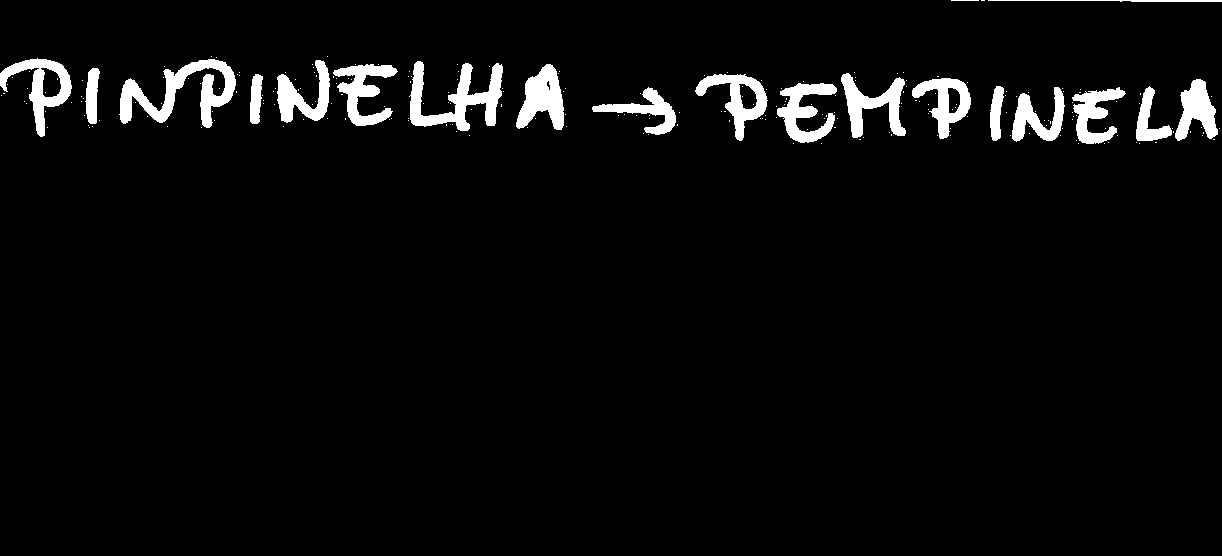 PINPINELHA → PEMPINELA